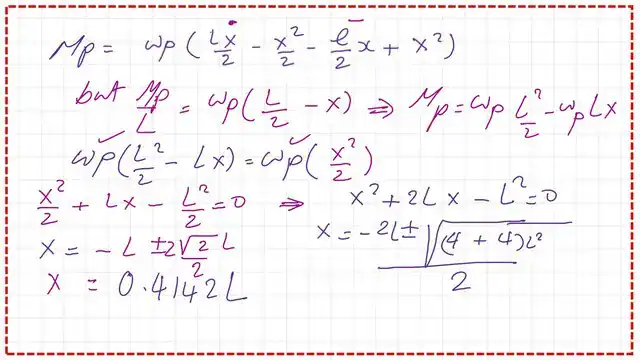 Mp = wp (Lx/2 - x²/2 - l/2 x + x²)
but Mp/L = wp (L/2 - x) ⇒ Mp = wp L²/2 - wp Lx
wp (L²/2 - Lx) = wp (x²/2)
x²/2 + Lx - L²/2 = 0 ⇒ x² + 2Lx - L² = 0
x = -L ± 2√2 L/2
x = -2L ± √(4 + 4)L² / 2
x = 0.4142L